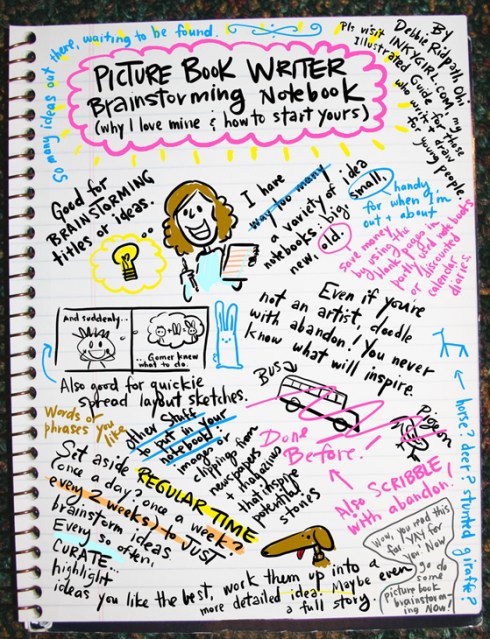 So many ideas out there, waiting to be found.
PICTURE BOOK WRITER
Brainstorming Notebook
(why I love mine & how to start yours)
BY
Debbie Ridpath Ohi
Pls visit INKYGIRL.com, my
Illustrated Guide for those
who write & draw
for young people.
Good for
BRAINSTORMING
titles or ideas.
I have
way too many
a variety of idea
notebooks: big, small,
new, old.
handy
for when I'm
out + about
save money
by using the
blank pages in
partly used notebooks
or discounted
calendar
diaries.
And suddenly..
...Gomer knew
what to do.
Even if you're
not an artist, doodle
with abandon! You never
know what will inspire.
Also good for quickie
spread layout sketches.
Words or
phrases you like
other stuff
to put in your
notebook!
images or
clippings from
newspapers
+ magazines
that inspire
potential
stories
BUS
Pigeon
Done
Before!
Also SCRIBBLE
with abandon!
horse? deer? stunted giraffe?
Set aside REGULAR TIME
(once a day? once a week?
every 2 weeks) to JUST
brainstorm ideas
Every so often:
CURATE...
highlight
ideas you like the best, work them up into a
more detailed idea. Maybe even
a full story.
Wow, you read this
far! YAY for
you! Now
go do
some
picture book
brainstorm-
ing NOW!